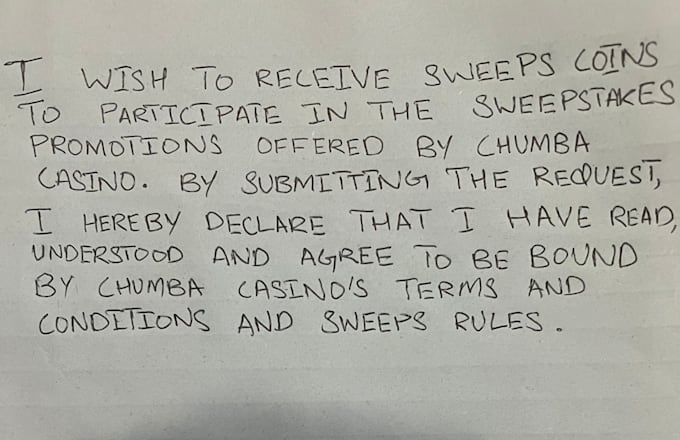 I WISH TO RECEIVE SWEEPS COINS
TO PARTICIPATE IN THE SWEEPSTAKES
PROMOTIONS OFFERED BY CHUMBA
CASINO. BY SUBMITTING THE REQUEST,
I HEREBY DECLARE THAT I HAVE READ,
UNDERSTOOD AND AGREE TO BE BOUND
BY CHUMBA CASINO'S TERMS AND
CONDITIONS AND SWEEPS RULES.